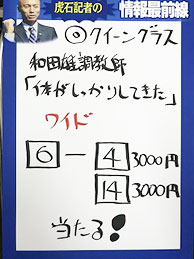 虎石記者の
情報最前線
◎クイーングラス
和田雄調教師
「体がしっかりしてきた」
ワイド
6 - 4 3000円
14 3000円
当たる!